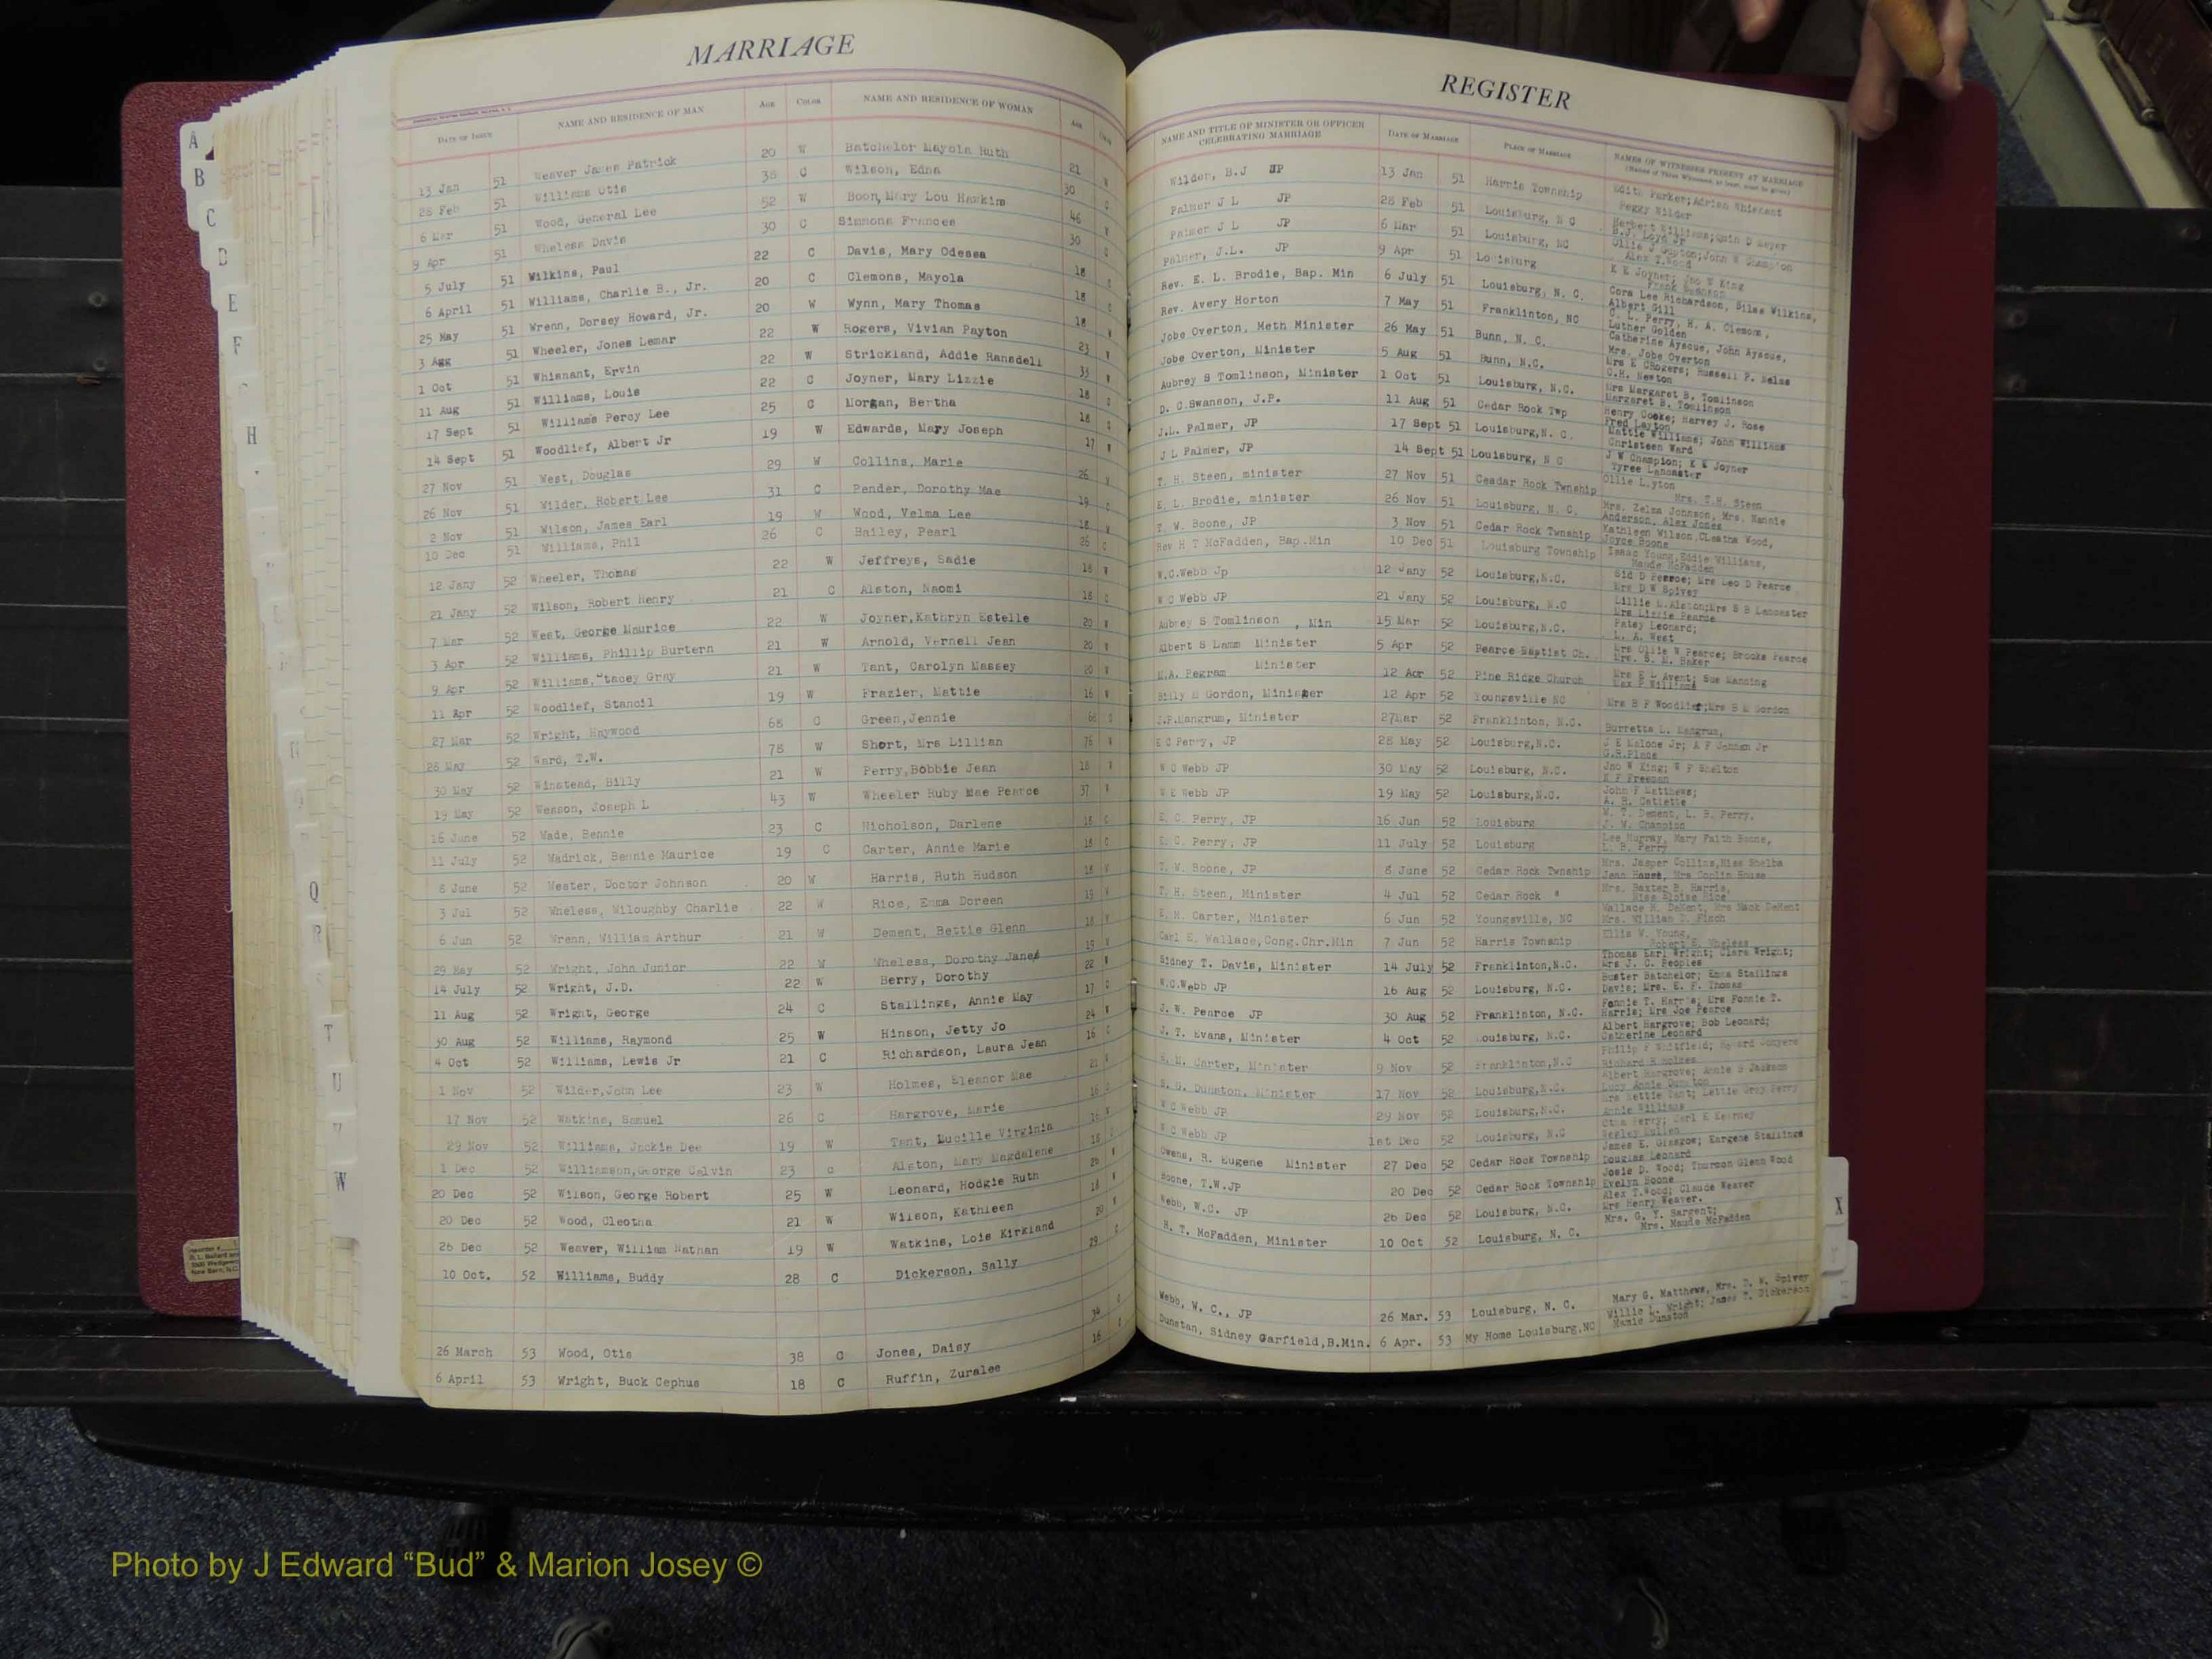 MARRIAGE
DATE OF ISSUE NAME AND RESIDENCE OF MAN AGE COLOR NAME AND RESIDENCE OF WOMAN AGE COLOR
13 Jan 51 Weaver James Patrick 20 W Batchelor Mayola Ruth 21 W
28 Feb 51 Williams Otis 38 C Wilson, Edna 30 C
6 Mar 51 Wood, General Lee 52 W Boon, Mary Lou Hawkins 46 W
9 Apr 51 Wheless Davis 30 C Simmons Frances 30 C
5 July 51 Wilkins, Paul 22 C Davis, Mary Odessa 18 C
6 April 51 Williams, Charlie B., Jr. 20 C Clemons, Mayola 18 C
25 May 51 Wrenn, Dorsey Howard, Jr. 20 W Wynn, Mary Thomas 18 W
3 Agg 51 Wheeler, Jones Lemar 22 W Rogers, Vivian Payton 23 W
1 Oct 51 Whisnant, Ervin 22 W Strickland, Addie Ransdell 33 W
11 Aug 51 Williams, Louis 22 C Joyner, Mary Lizzie 18 C
17 Sept 51 Williams Percy Lee 25 C Morgan, Bertha 18 C
14 Sept 51 Woodlief, Albert Jr 19 W Edwards, Mary Joseph 17 W
27 Nov 51 West, Douglas 29 W Collins, Marie 26 W
26 Nov 51 Wilder, Robert Lee 31 C Pender, Dorothy Mae 19 C
2 Nov 51 Wilson, James Earl 19 W Wood, Velma Lee 18 W
10 Dec 51 Williams, Phil 26 C Bailey, Pearl 26 C
12 Jany 52 Wheeler, Thomas 22 W Jeffreys, Sadie 18 W
21 Jany 52 Wilson, Robert Henry 21 C Alston, Naomi 18 C
7 Mar 52 West, George Maurice 22 W Joyner,Kathryn Estelle 20 W
3 Apr 52 Williams, Phillip Burtern 21 W Arnold, Vernell Jean 20 W
9 Apr 52 Williams, tacey Gray 21 W Tant, Carolyn Massey 20 W
11 Apr 52 Woodlief, Stancil 19 W Frazier, Mattie 16 W
27 Mar 52 Wright, Haywood 68 C Green,Jennie 68 C
28 May 52 Ward, T.W. 78 W Short, Mrs Lillian 76 W
30 May 52 Winstead, Billy 21 W Perry,Bobbie Jean 18 W
19 May 52 Weason, Joseph L 43 W Wheeler Ruby Mae Pearce 37 W
16 June 52 Wade, Bennie 23 C Nicholson, Darlene 18 C
11 July 52 Wadrick, Bennie Maurice 19 C Carter, Annie Marie 18 C
8 June 52 Wester, Doctor Johnson 20 W Harris, Ruth Hudson 18 W
3 Jul 52 Wheless, Wiloughby Charlie 22 W Rice, Emma Doreen 19 W
6 Jun 52 Wrenn, William Arthur 21 W Dement, Bettie Glenn 18 W
29 May 52 Wright, John Junior 22 W Wheless, Dorothy Janes 19 W
14 July 52 Wright, J.D. 22 W Berry, Dorothy 22 W
11 Aug 52 Wright, George 24 C Stallings, Annie May 17 C
30 Aug 52 Williams, Raymond 25 W Hinson, Jetty Jo 24 W
4 Oct 52 Williams, Lewis Jr 21 C Richardson, Laura Jean 16 C
1 Nov 52 Wilder,John Lee 23 W Holmes, Eleanor Mae 21 W
17 Nov 52 Watkins, Samuel 26 C Hargrove, Marie 18 C
29 Nov 52 Williams, Jackie Dee 19 W Tant, Lucille Virginia 18 W
1 Dec 52 Williamson,George Calvin 23 C Alston, Mary Magdalene 18 C
20 Dec 52 Wilson, George Robert 25 W Leonard, Hodgie Ruth 20 W
20 Dec 52 Wood, Cleotha 21 W Wilson, Kathleen 18 W
26 Dec 52 Weaver, William Nathan 19 W Watkins, Lois Kirkland 20 W
10 Oct. 52 Williams, Buddy 28 C Dickerson, Sally 29 C
26 March 53 Wood, Otis 38 C Jones, Daisy 34 C
6 April 53 Wright, Buck Cephus 18 C Ruffin, Zuralee 16 C
REGISTER
NAME AND TITLE OF MINISTER OR OFFICER CELEBRATING MARRIAGE DATE OF MARRIAGE PLACE OF MARRIAGE NAMES OF WITNESSES PRESENT AT MARRIAGE
Wilder, B.J JP 13 Jan 51 Harris Township Edith Parker; Adrian Whisnant
Peggy Wilder
Palmer J L JP 28 Feb 51 Louisburg, N C Herbert Williams;Quin D Meyer
B.J. Loyd Jr
Palmer J L JP 6 Mar 51 Louisburg, NC Ollie J Gupton;John W Champion
Alex T.Wood
Palmer, J.L. JP 9 Apr 51 Louisburg K K Joyner; Jno W King
Rev. E. L. Brodie, Bap. Min 6 July 51 Louisburg, N. C. Cora Lee Richardson, Silas Wilkins,
Albert Gill
Rev. Avery Horton 7 May 51 Franklinton, NC C. L. Perry, H. A. Clemons,
Luther Golden
Jobe Overton, Meth Minister 26 May 51 Bunn, N. C. Catherine Ayscue, John Ayscue,
Mrs. Jobe Overton
Jobe Overton, Minister 5 Aug 51 Bunn, N.C. Mrs E CRogers; Russell P. Nelms
O.H. Newton
Aubrey S Tomlinson, Minister 1 Oct 51 Louisburg, N.C. Mrs Margaret B. Tomlinson
Margaret B. Tomlinson
D. C.Swanson, J.P. 11 Aug 51 Cedar Rock Twp Henry Cooke; Harvey J. Rose
Fred Layton
J.L. Palmer, JP 17 Sept 51 Louisburg,N. C. Mattie Williams; John Williams
Christeen Ward
J L Palmer, JP 14 Sept 51 Louisburg, N C J W Champion; K K Joyner
Tyree Lancaster
T. H. Steen, minister 27 Nov 51 Ceadar Rock Twnship Ollie L.yton
Mrs. T.H. Steen
E. L. Brodie, minister 26 Nov 51 Louisburg, N. C. Mrs. Zelma Johnson, Mrs. Nannie
Anderson, Alex Jones
T. W. Boone, JP 3 Nov 51 Cedar Rock Twnship Kathleen Wilson,CLeatha Wood,
Joyce Boone
Rev H T McFadden, Bap.Min 10 Dec 51 Louisburg Township Isaac Young,Eddie Williams,
Maude McFadden
W.C.Webb Jp 12 Jany 52 Louisburg,N.C. Sid D Pearce; Mrs Leo D Pearce
Mrs D W Spivey
W C Webb JP 21 Jany 52 Louisburg, N.C Lillie M.Alston;Mrs S B Lancaster
Mrs Lizzie Pearce
Aubrey S Tomlinson , Min 15 Mar 52 Louisburg,N.C. Patsy Leonard;
L. A. West
Albert S Lamm Minister 5 Apr 52 Pearce Baptist Ch. Mrs Ollie W Pearce; Brooks Pearce
Mrs. S. M. Baker
M.A. Pegram Minister 12 Apr 52 Pine Ridge Church Mrs E L Avent; Sue Manning
Max P Williams
Billy M Gordon, Minister 12 Apr 52 Youngsville NC Mrs B F Woodlief;Mrs B M Gordon
J.P.Mangrum, Minister 27Mar 52 Franklinton, N.C. Burretta L. Mangrum,
E C Perry, JP 28 May 52 Louisburg,N.C. J E Malone Jr; A F Johnson Jr
W C Webb JP 30 May 52 Louisburg, N.C. Jno W King; W F Shelton
K F Freeman
W E Webb JP 19 May 52 Louisburg,N.C. John F Matthews;
A. R. Catlette
E. C. Perry, JP 16 Jun 52 Louisburg W. T. Dement, L. B. Perry,
J. W. Champion
E. C. Perry, JP 11 July 52 Louisburg Lee Murray, Mary Faith Boone,
L. B. Perry
T. W. Boone, JP 8 June 52 Cedar Rock Twnship Mrs. Jasper Collins,Miss Shelba
T. H. Steen, Minister 4 Jul 52 Cedar Rock " Mrs. Baxter B. Harris,
Miss Eloise Rice
E. H. Carter, Minister 6 Jun 52 Youngsville, NC Wallace H. DeMent, Mrs Mack DeMent
Mrs. William D. Finch
Carl E. Wallace,Cong.Chr.Min 7 Jun 52 Harris Township Ellis W. Young,
Robert E. Wheless
Sidney T. Davis, Minister 14 July 52 Franklinton,N.C. Thomas Earl Wright; Clara Wright;
Mrs J. C. Peoples
W.C.Webb JP 16 Aug 52 Louisburg, N.C. Buster Batchelor; Emma Stallings
Davis; Mrs. E. F. Thomas
J. W. Pearce JP 30 Aug 52 Franklinton, N.C. Fonnie T. Harris; Mrs Fonnie T.
Harris; Mrs Joe Pearce
J. T. Evans, Minister 4 Oct 52 Louisburg, N.C. Albert Hargrove; Bob Leonard;
Catherine Leonard
E. H. Carter, Minister 9 Nov 52 Franklinton,N.C Philip F Whitfield; Howard Conyers
Richard H Holmes
S. G. Dunston, Minister 17 Nov 52 Louisburg,N.C. Albert Hargrove; Annie B Jackson
Lucy Annie Dunston
W C Webb JP 29 Nov 52 Louisburg,N.C. Mrs Bettie Tant; Lettie Gray Perry
Annie Williams
W C Webb JP 1st Dec 52 Louisburg, N.C Perry; Carl E Kearney
Wesley Mullen
Owens, R. Eugene Minister 27 Dec 52 Cedar Rock Township James E. Glasgow; Eargene Stallings
Douglas Leonard
Boone, T.W.JP 20 Dec 52 Cedar Rock Township Josie D. Wood; Thurmon Glenn Wood
Evelyn Boone
Webb, W.C. JP 26 Dec 52 Louisburg, N.C. Alex T.Wood; Claude Weaver
Mrs Henry Weaver.
H. T. McFadden, Minister 10 Oct 52 Louisburg, N. C. Mrs. G. Y. Sargent;
Mrs. Maude McFadden
Webb, W. C., JP 26 Mar. 53 Louisburg, N. C. Mary G. Matthews, Mrs. D. W. Spivey
Dunstan, Sidney Garfield,B.Min. 6 Apr. 53 My Home Louisburg,NC Willie L. Wright; James T. Dickerson
Mamie Dunston
A
B
C
D
E
F
H
Q
R
T
U
W
X
Photo by J Edward “Bud” & Marion Josey ©